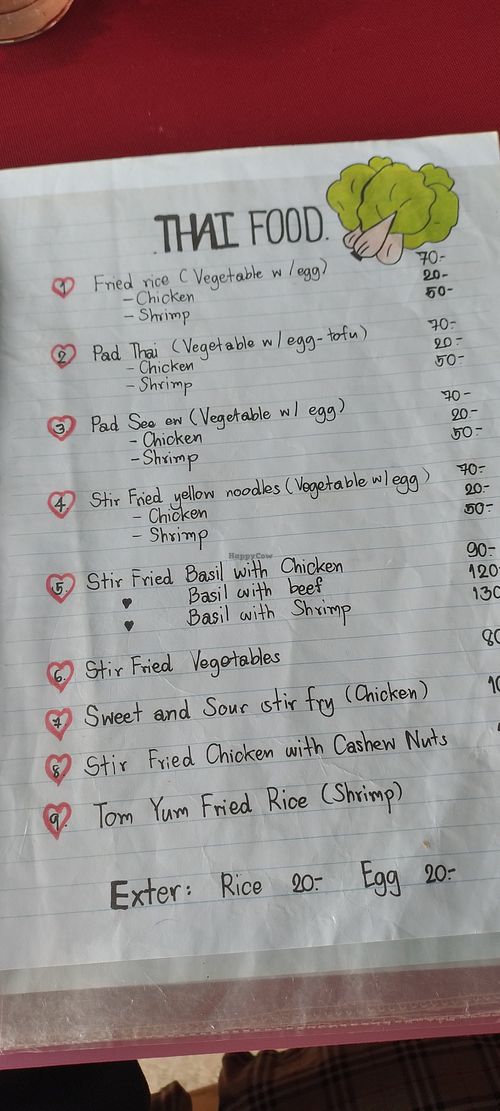 THAI FOOD.
1 Fried rice (Vegetable w/egg) 70.-
- Chicken 20-
- Shrimp 50-
2 Pad Thai (Vegetable w/egg-tofu) 70.-
- Chicken 20.-
- Shrimp 50-
3 Pad See ew (Vegetable w/ egg) 70-
- Chicken 20-
- Shrimp 50-
4. Stir Fried yellow noodles (Vegetable w/egg) 70-
- Chicken 20-
- Shrimp 50-
HappyCow
5. Stir Fried Basil with Chicken 90.-
♥ Basil with beef 120
♥ Basil with Shrimp 130
6. Stir Fried Vegetables
7 Sweet and Sour stir fry (Chicken)
8 Stir Fried Chicken with Cashew Nuts
9. Tom Yum Fried Rice (Shrimp)
Exter: Rice 20.- Egg 20.-